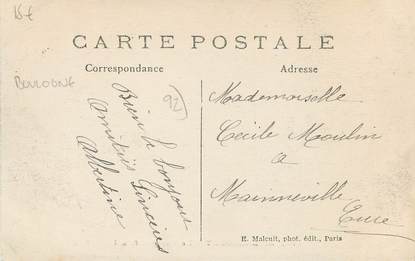 15€
CARTE POSTALE
Correspondance
Adresse
BOULOGNE
92
Bien le bonjour
Amitiés Sincères
Albertine
Mademoiselle
Cécile Moulin
a
Mainneville
Eure
E. Malcuit, phot. édit., Paris